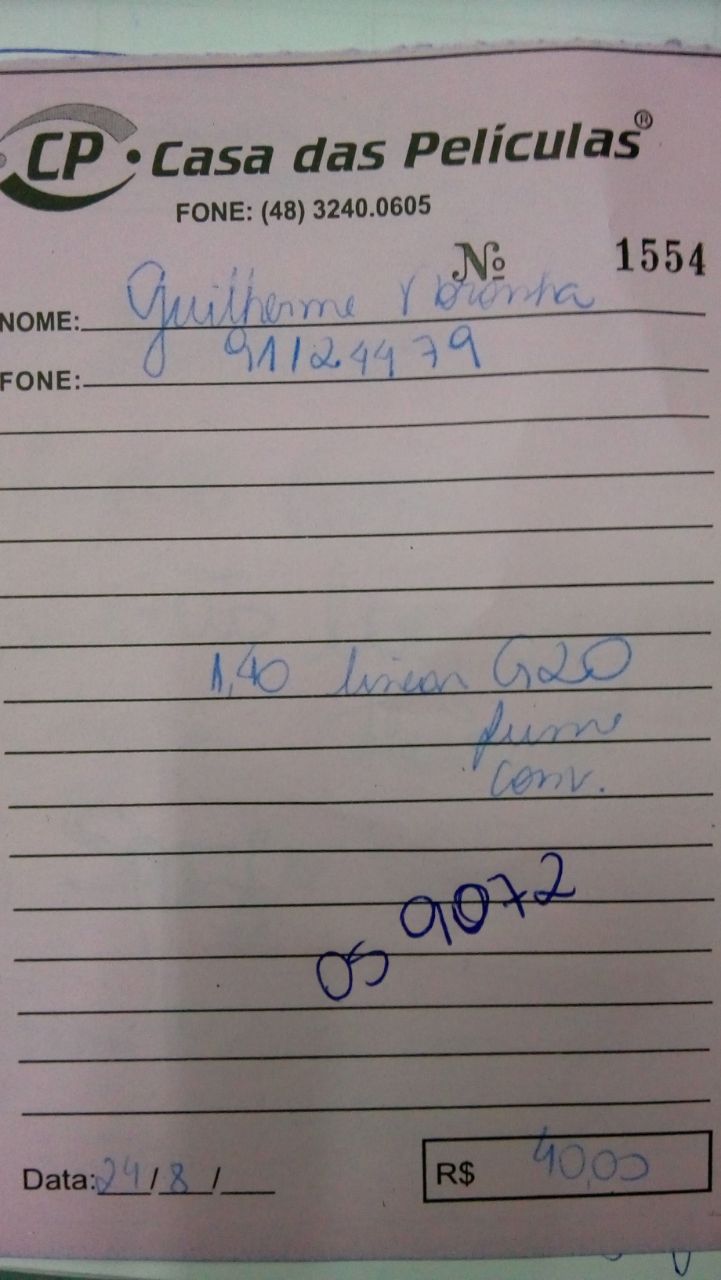 CP • Casa das Películas®
FONE: (48) 3240.0605
Nº 1554
NOME: Guilherme
FONE: 91124479
1,40 linear G20
fume
conv.
OS 9072
Data: 24/8/
R$ 40,00